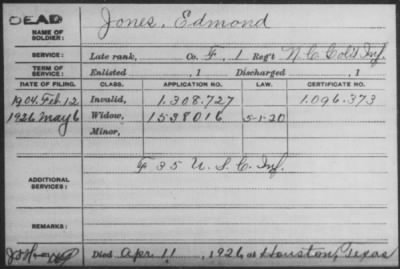 DEAD
NAME OF SOLDIER: Jones, Edmond
SERVICE: Late rank, Co. F, 1 Reg't N.C. Col'd Inf.
TERM OF SERVICE: Enlisted , 1 Discharged , 1
DATE OF FILING. CLASS. APPLICATION NO. LAW. CERTIFICATE NO.
1904. Feb. 12 Invalid, 1.308.727 1.096.373
1926 May 6 Widow, 1538016 5-1-20
Minor,
ADDITIONAL SERVICES: F 35 U.S.C. Inf.
REMARKS:
Died Apr. 11, 1926, at Houston, Texas